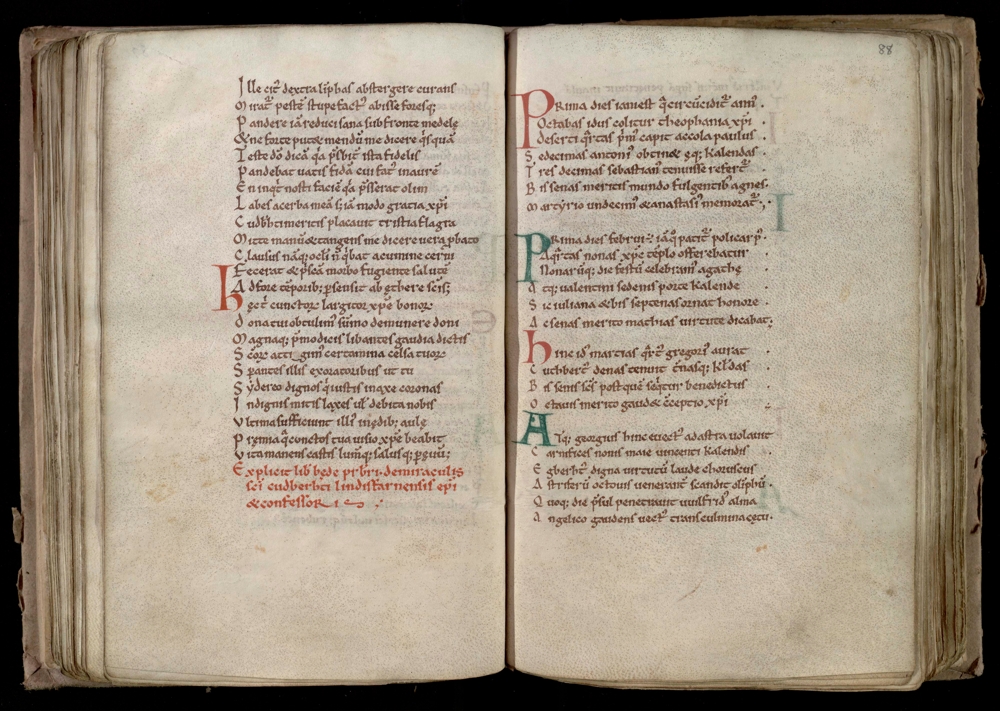 Ille cit᷒ dextra liphas abstergere curans
Mirat᷒ pestē stupefact᷒ abisse foresq;
Pandere iā reduci sana sub fronte medelę
& ne forte putes mendū me dicere q̇squā
Teste dō dicā q̄a p̄sbit᷒ ista fidelis
Pandebat uatis fidā cui fat᷒ in aurē
En inqt nosti faciē q̄a p̄sserat olim
Labes acerba meā s; iā modo gratia xp̄i
Cudbhti meritis placauit tristia flagra
Mitte manū & tangens me dicere uera ꝓbato
Clausus nāq; oclī n̄ q̇bat acumine cerni
Fecerat & p̄scā morbo fugiente salutē
Adfore tēporib; ꝑsensit ab ęthere sc̄is;
Hęc t᷒ cunctoꝝ largitor xp̄e bonoꝝ
Dona tui obtulim᷒ sūmo de munere doni
Magnaq; ꝑ modicis libantes gaudia dictis
Sc̄oꝝ acti gim᷒ certamina celsa tuoꝝ
Sperantes illis exoratoribus ut tu
Sydereo dignos q̇ iustis in axe coronas
Indignis mitis laxes ul̄ debita nobis
Vltima sufficiunt illī inędib; aulę
Prēmia q̄ cunctos tua uisio xp̄e beabit
Vita manens castis lumq; salusq; ꝑęuū;
Explicit lib᷒ bede prb̄ri. de miraculis
sc̄i cudberhti lindisfarnensis ep̄i
& confessoꝝ
88
Prima dies iani est q̄ circūcidit᷒ anni .
Octabas idus colitur theophania xp̄i .
Deserti q̄rtas p̄m᷒ capit accola paulus .
Sedecimas antoni᷒ obtin& ęq; kalendas .
Tres decimas sebastian᷒ tenuisse refert᷒ .
Bissenas meritis mundo fulgentib; agnes.
Martyrio undecim᷒ & anastasi᷒ memorat᷒;
Prima dies februi ÷ iā q̄ patit᷒ policarp᷒ .
Aq̄rtas nonas xp̄c tēplo offerebatur .
Nonarūq; die festū celebram᷒ agathę .
Atq; ualentini sedenis sorte kalende .
Sic iuliana & bis septenas ornat honore .
Ac senas merito mathias uirtute dicabat;
Hinc id᷒ martias q̄rt᷒ gregori᷒ aurat .
Cuthberht᷒ denas tenuit t᷒nasq; kl̄das .
Bis senis sc̄s post quē seq̇tur benedictus .
Octauis merito gaud& c̄ceptio xp̄i .
Atq; georgius hinc euect᷒ ad astra uolauit
Carnifices nonis maie uincenti kalendis .
Egberht᷒ digna uirtutū laude choruscus .
Astriferū octouis ueneran᷒ scandit olīphū .
Quoq; die p̄sul penetrauit uuilfrid᷒ alma .
Angelico gaudens uect᷒ trans culmina cętu.